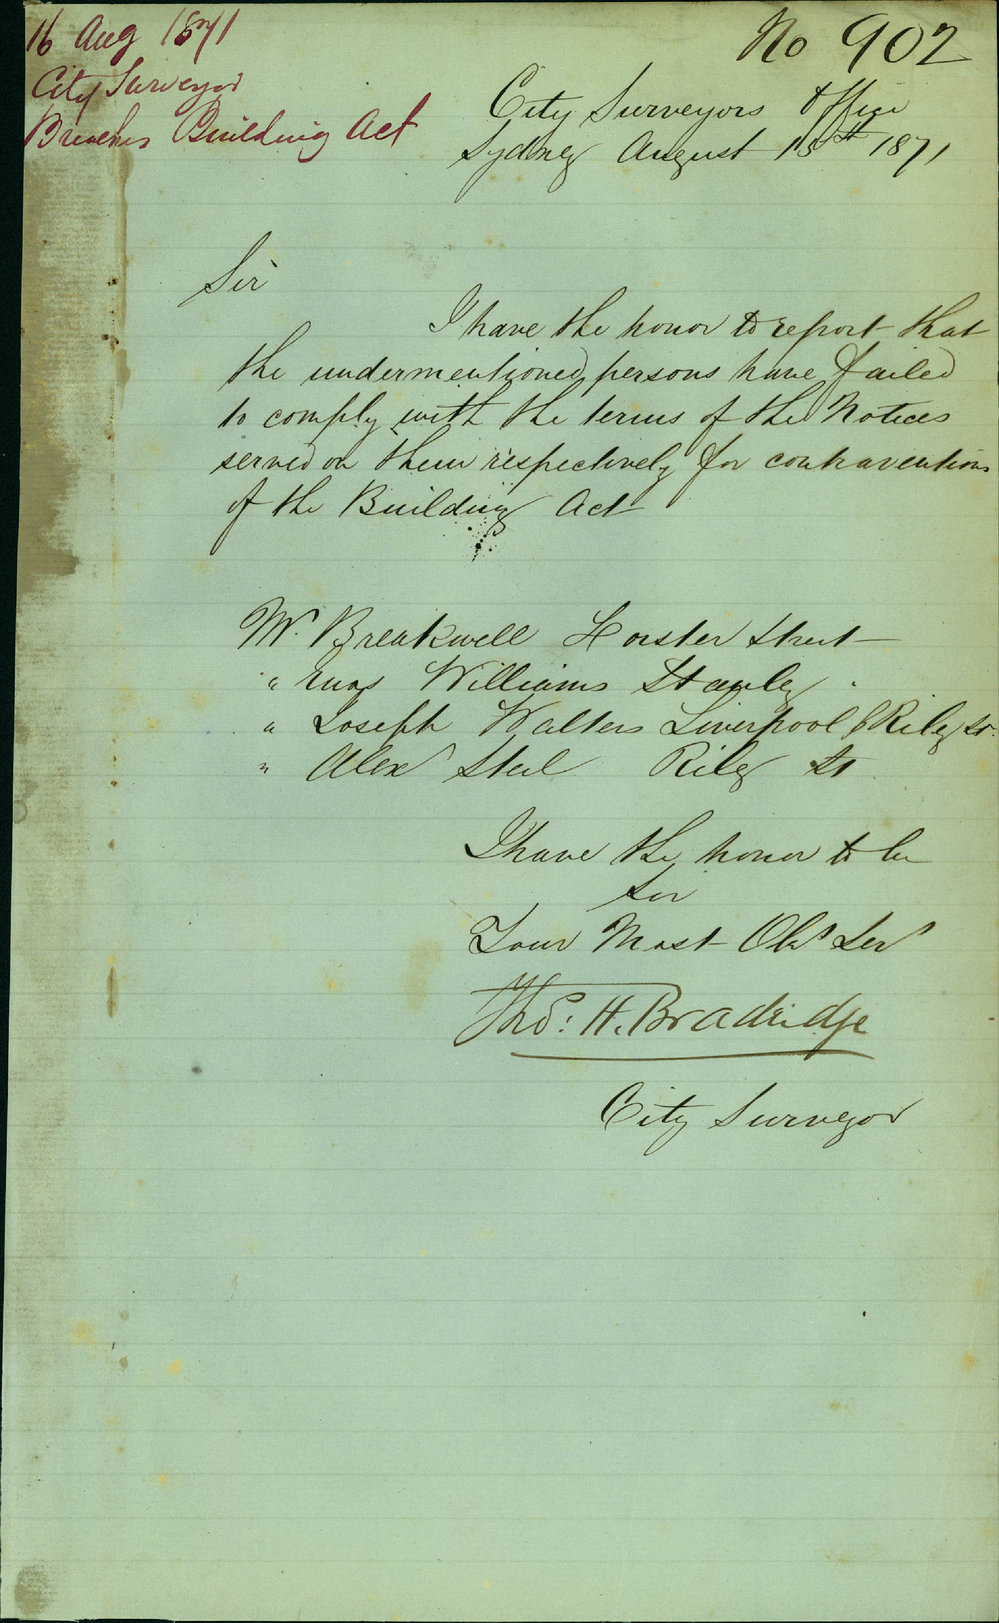 16 Aug 1871
City Surveyor
Breaches Building Act
No 902
City Surveyors Office
Sydney August 15th 1871
Sir
I have the honor to report that
the undermentioned persons have failed
to comply with the terms of the Notices
served on them respectively for contraventions
of the Building Act
Mr. Breakwell Forster Street
" Enos Williams Stanley "
" Joseph Walters Liverpool & Riley St.
" Alexr Steel Riley St
I have the honor to be
Sir
Your Most Obt Sert
Thos: H. Bradridge
City Surveyor